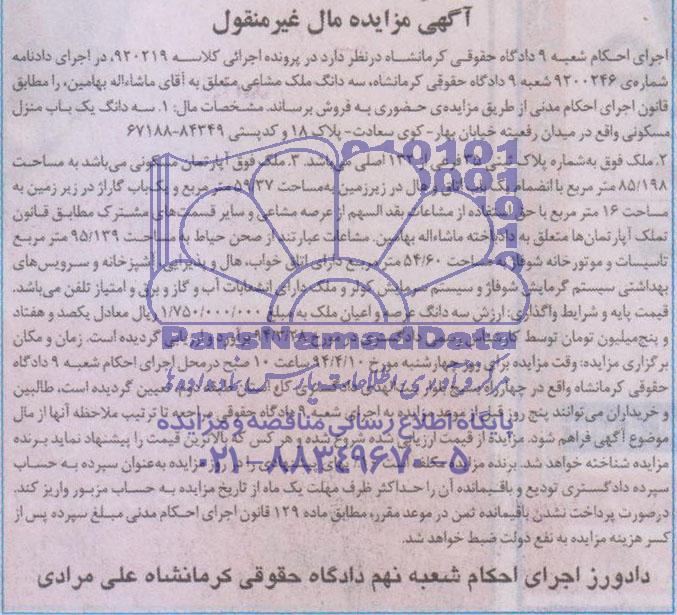 آگهی مزایده مال غیرمنقول
اجرای احکام شعبه ۹ دادگاه حقوقی کرمانشاه درنظر دارد در پرونده اجرائی کلاسه ۹۲۰۲۱۹، در اجرای دادنامه
شماره‌ی ۹۲۰۰۲۴۶ شعبه ۹ دادگاه حقوقی کرمانشاه، سه دانگ ملک مشاعی متعلق به آقای ماشاءاله بهامین، را مطابق
قانون اجرای احکام مدنی از طریق مزایده‌ی حضوری به فروش برساند. مشخصات مال: ۱. سه دانگ یک باب منزل
مسکونی واقع در میدان رفعتیه خیابان بهار-کوی سعادت- پلاک ۱۸ و کدپستی ۸۴۳۴۹-۶۷۱۸۸
۲. ملک فوق به‌شماره پلاک ثبتی ۳۵ فرعی از ۱۳۲ اصلی می‌باشد. ۳. ملک فوق آپارتمان مسکونی می‌باشد به مساحت
۸۵/۱۹۸ متر مربع با انضمام یک باب اتاق و هال در زیرزمین به‌مساحت ۵۹/۳۷ متر مربع و یک‌باب گاراژ در زیر زمین به
مساحت ۱۶ متر مربع با حق استفاده از مشاعات بقدالسهم از عرصه مشاعی و سایر قسمت‌های مشترک مطابق قانون
تملک آپارتمان‌ها متعلق به دادباخته ماشاءاله بهامین. مشاعات عبارتند از صحن حیاط به مساحت ۹۵/۱۳۹ متر مربع
تاسیسات و موتورخانه شوفاژ به مساحت ۵۴/۶۰ متر مربع دارای اتاق خواب، هال و پذیرایی، آشپزخانه و سرویس‌های
بهداشتی سیستم گرمایش شوفاژ و سیستم سرمایش کولر و ملک دارای انشعابات آب و گاز و برق و امتیاز تلفن می‌باشد.
قیمت پایه و شرایط واگذاری: ارزش سه دانگ عرصه و اعیان ملک به مبلغ ۱/۷۵۰/۰۰۰/۰۰۰ ریال معادل یکصد و هفتاد
و پنج‌میلیون تومان توسط کارشناس رسمی دادگستری در مورخ برآورد و ارزیابی گردیده است. زمان و مکان
برگزاری مزایده: وقت مزایده برای روز چهارشنبه مورخ ۹۴/۴/۱۰ ساعت ۱۰ صبح درمحل اجرای احکام شعبه ۹ دادگاه
حقوقی کرمانشاه واقع در چهارراه بسیج بلوار دادگستری کل استان طبقه دوم، تعیین گردیده است، طالبین
و خریداران می‌توانند پنج روز قبل از موعد مزایده به اجرای شعبه ۹ دادگاه حقوقی مراجعه تا ترتیب ملاحظه آنها از مال
موضوع آگهی فراهم شود. مزایده از قیمت ارزیابی شده شروع شده و هر کس که بالاترین قیمت را پیشنهاد نماید برنده
مزایده شناخته خواهد شد. برنده مزایده مکلف است مزایده به‌عنوان سپرده به حساب
سپرده دادگستری تودیع و باقیمانده آن را حداکثر ظرف مهلت یک ماه از تاریخ مزایده به حساب مزبور واریز کند.
درصورت پرداخت نشدن باقیمانده ثمن در موعد مقرر، مطابق ماده ۱۲۹ قانون اجرای احکام مدنی مبلغ سپرده پس از
کسر هزینه مزایده به نفع دولت ضبط خواهد شد.
دادورز اجرای احکام شعبه نهم دادگاه حقوقی کرمانشاه علی مرادی
ParsNamadData
پایگاه اطلاع رسانی مناقصه و مزایده
۰۲۱-۸۸۳۴۹۶۷۰-۵